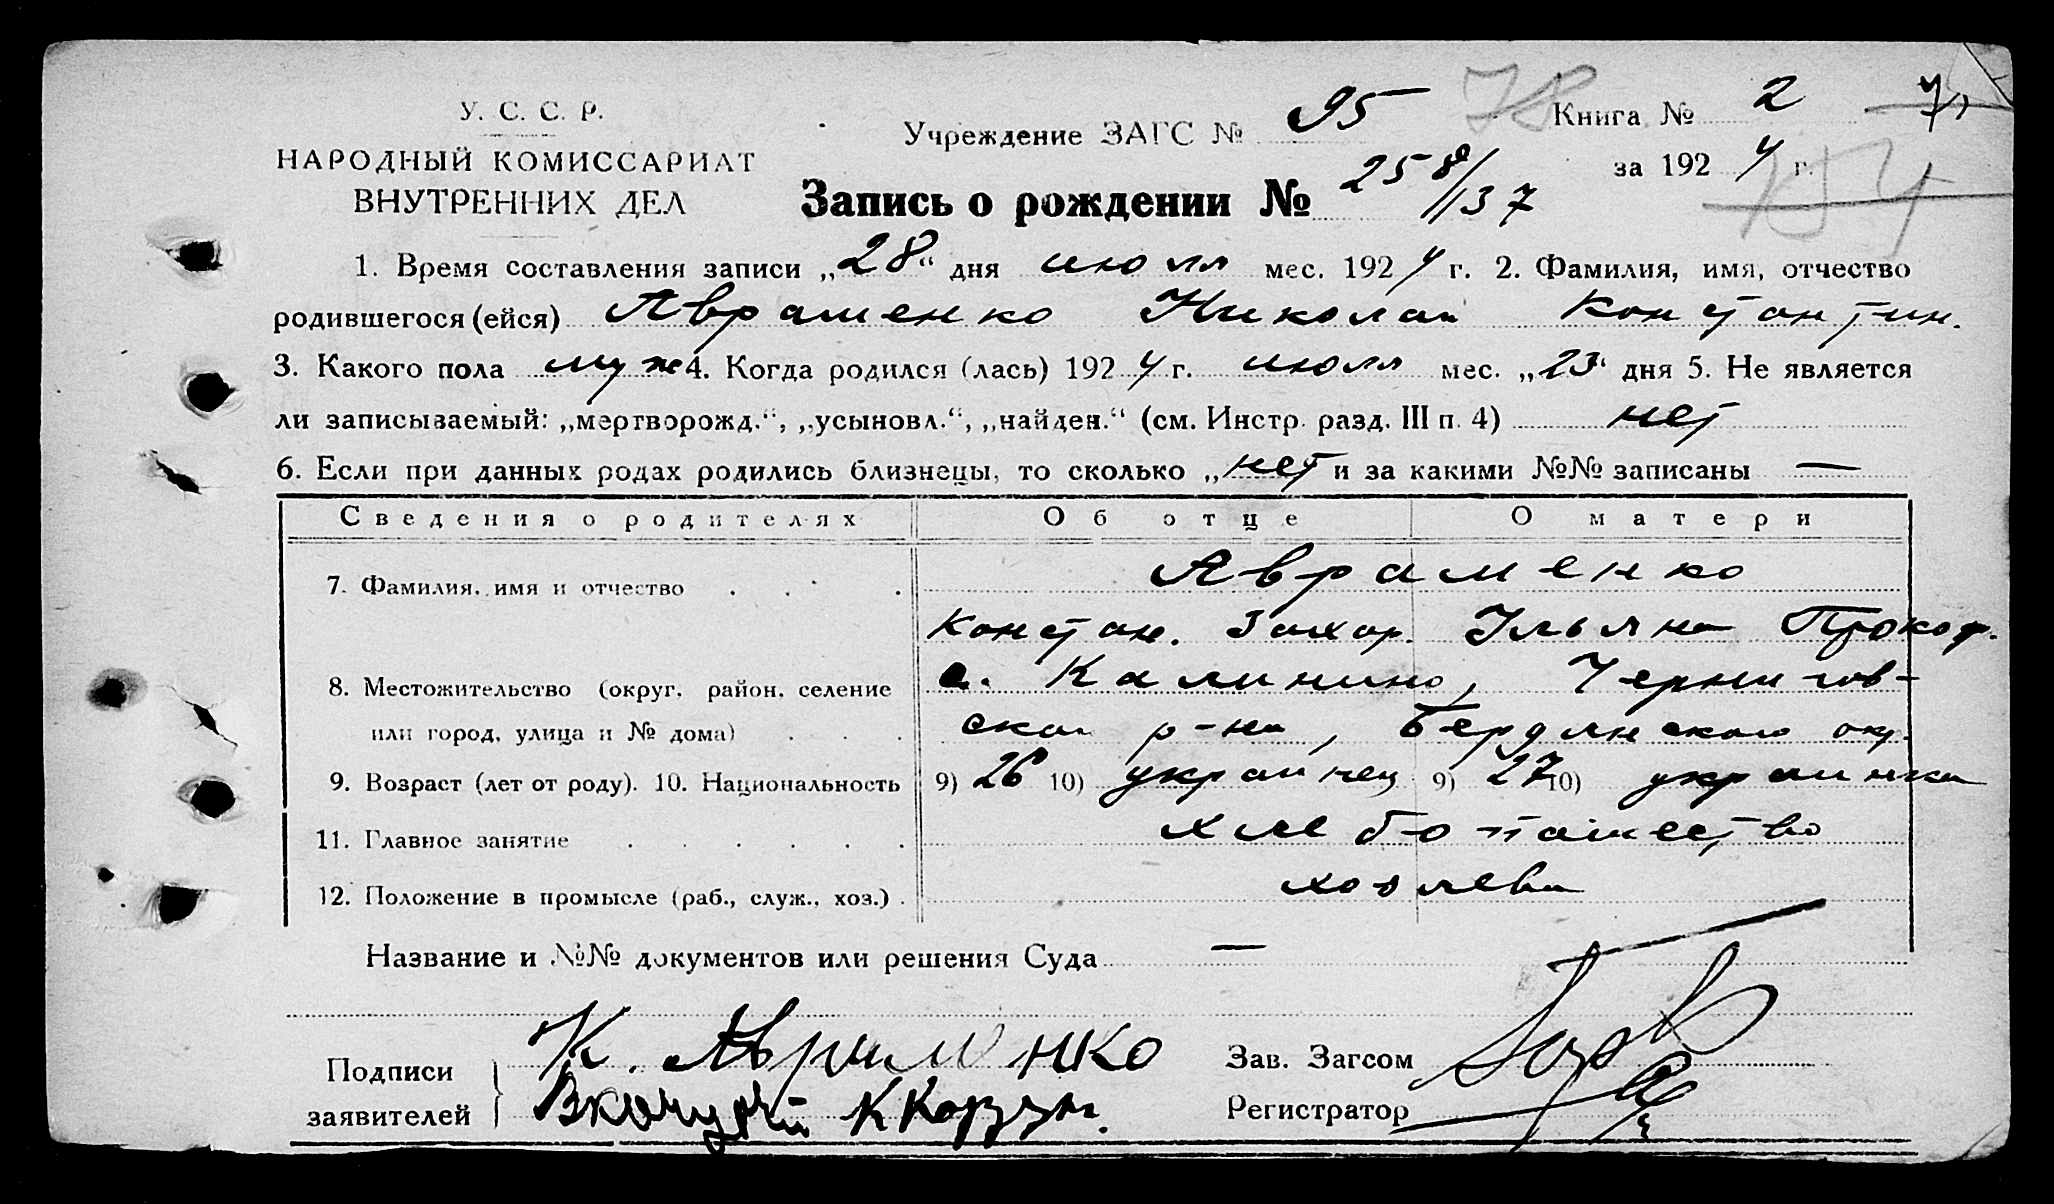 У. С. С. Р.
НАРОДНЫЙ КОМИССАРИАТ
ВНУТРЕННИХ ДЕЛ
Учреждение ЗАГС № 95 78 Книга № 2 7
за 1924 г.
Запись о рождении № 258/137
1. Время составления записи „28“ дня июля мес. 1924 г. 2. Фамилия, имя, отчество
родившегося (ейся) Авраменко Николай Константин.
3. Какого пола муж 4. Когда родился (лась) 1924 г. июля мес. „23“ дня 5. Не является
ли записываемый: „мертворожд.“, „усыновл.“, „найден.“ (см. Инстр. разд. III п. 4) нет
6. Если при данных родах родились близнецы, то сколько „нет и за какими №№ записаны —
Сведения о родителях Об отце О матери
7. Фамилия, имя и отчество Авраменко
Констан. Захар. Ульяна Прокоф.
8. Местожительство (округ, район, селение с. Калинино, Чернигов-
или город, улица и № дома) ского р-на, Бердянского окр.
9. Возраст (лет от роду). 10. Национальность 9) 26 10) украинец 9) 27 10) украинка
11. Главное занятие хлебопашество
12. Положение в промысле (раб., служ., хоз.) хозяева
Название и №№ документов или решения Суда —
Подписи К. Авраменко Зав. Загсом
заявителей Регистратор